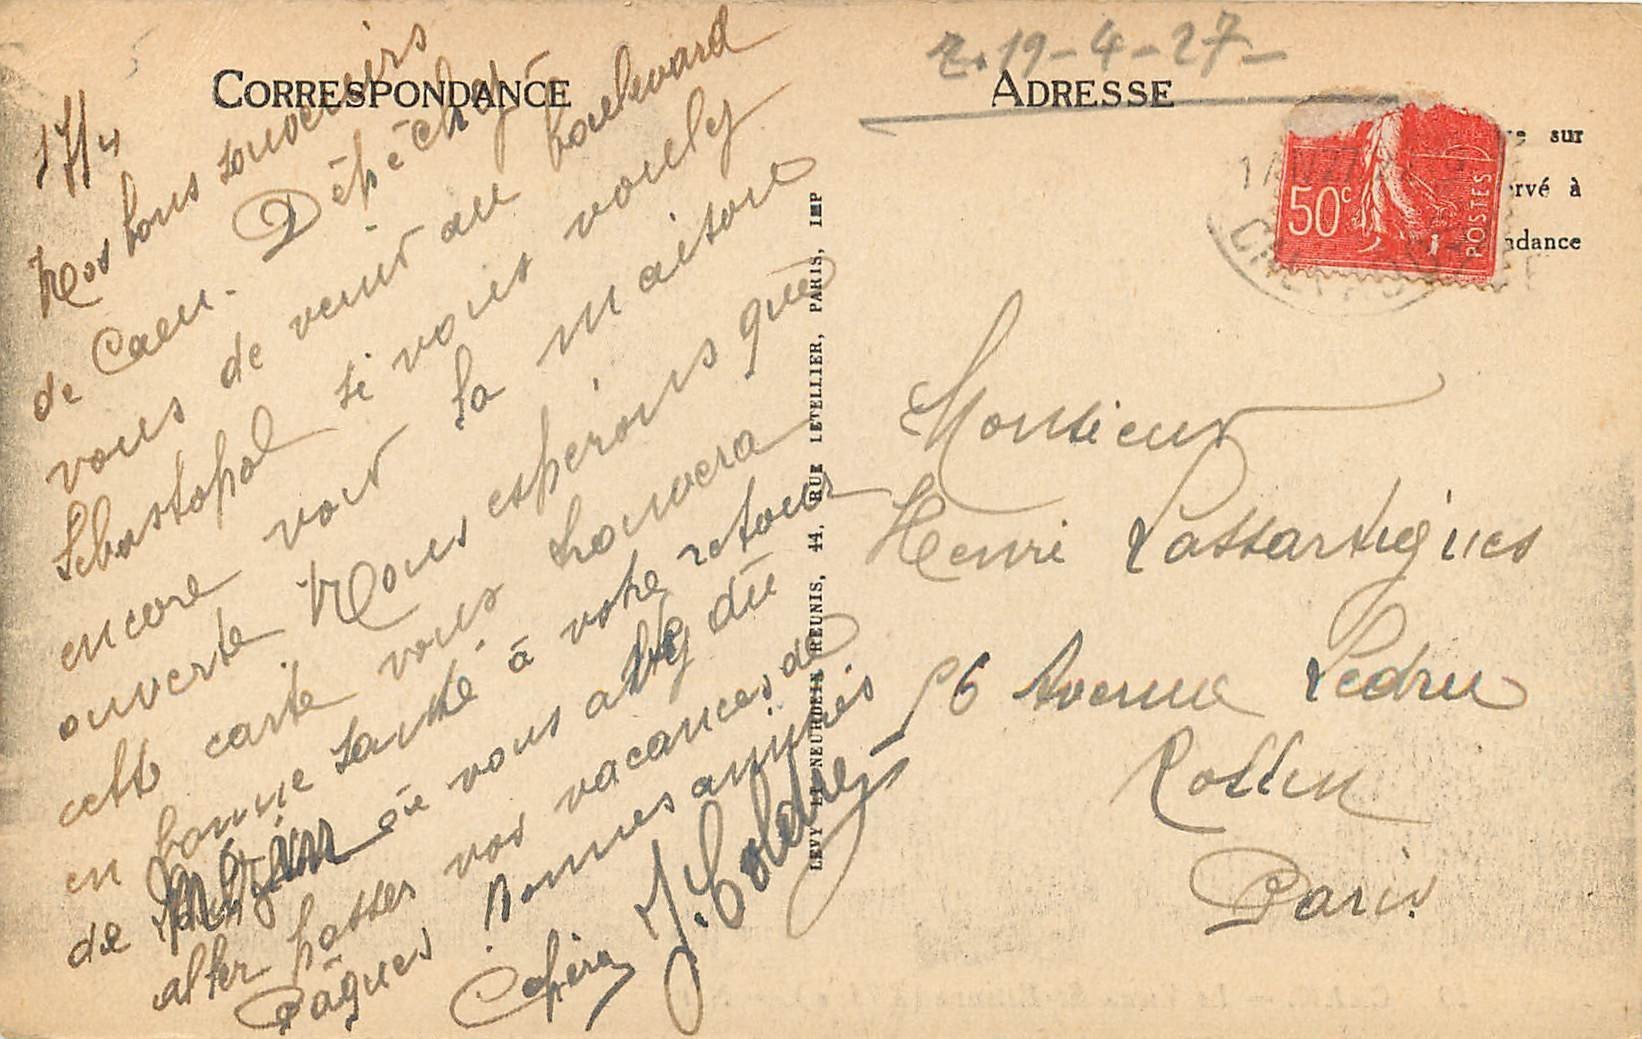 CORRESPONDANCE
17/4
Nos bons souvenirs
de Caen. Dépêchez
vous de venir au boulevard
Sébastopol si vous voulez
encore voir la maison
ouverte Nous espérons que
cette carte vous trouvera
en bonne santé à votre retour
de où vous avez dû
aller passer vos vacances de
Pâques Bonnes amitiés
LEVY ET NEURDEIN REUNIS, 44, RUE LETELLIER, PARIS, IMP
r. 19-4-27-
ADRESSE
sur
rvé à
ndance
50c
POSTES
Monsieur
Henri Lassartigues
56 Avenue Ledru
Rollin
Paris